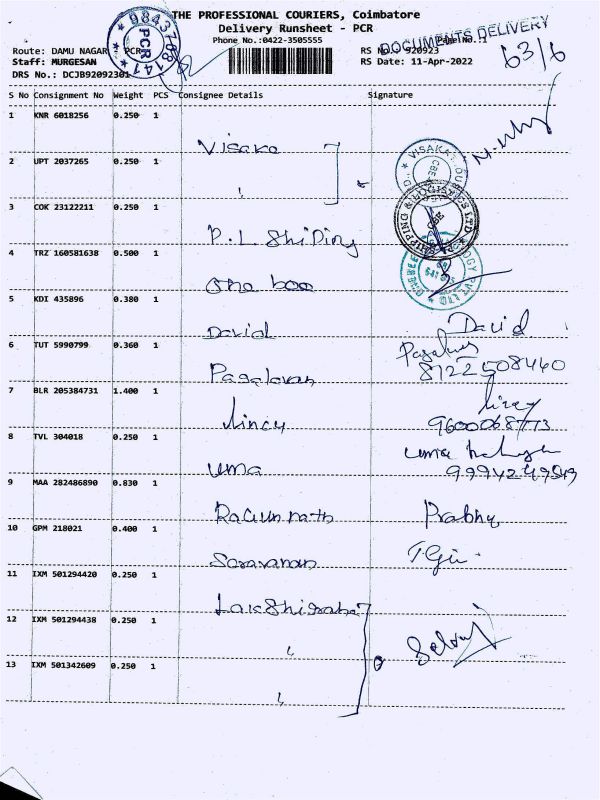 THE PROFESSIONAL COURIERS, Coimbatore
Delivery Runsheet - PCR
Phone No.:0422-3505555
Page No.:1
DOCUMENTS DELIVERY
63/6
9843708141
PCR
Route: DAMU NAGAR - PCR
RS No.: 920923
Staff: MURGESAN
RS Date: 11-Apr-2022
DRS No.: DCJB92092301
S No Consignment No Weight PCS Consignee Details Signature
1 KNR 6018256 0.250 1 Visaka
2 UPT 2037265 0.250 1 "
3 COK 23122211 0.250 1 P.L Shiping
SHIPPING & LOGISTICS LTD
CBE
4 TRZ 160581638 0.500 1 One bee
5 KDI 435896 0.380 1 David David
6 TUT 5990799 0.360 1 Pagalavan
8122508460
7 BLR 205384731 1.400 1 lincy lincy
9600068773
8 TVL 304018 0.250 1 uma uma
9 MAA 282486890 0.830 1 Ragunnath Prabhu
10 GPM 218021 0.400 1 Saravanan
11 IXM 501294420 0.250 1
12 IXM 501294438 0.250 1 "
13 IXM 501342609 0.250 1 "